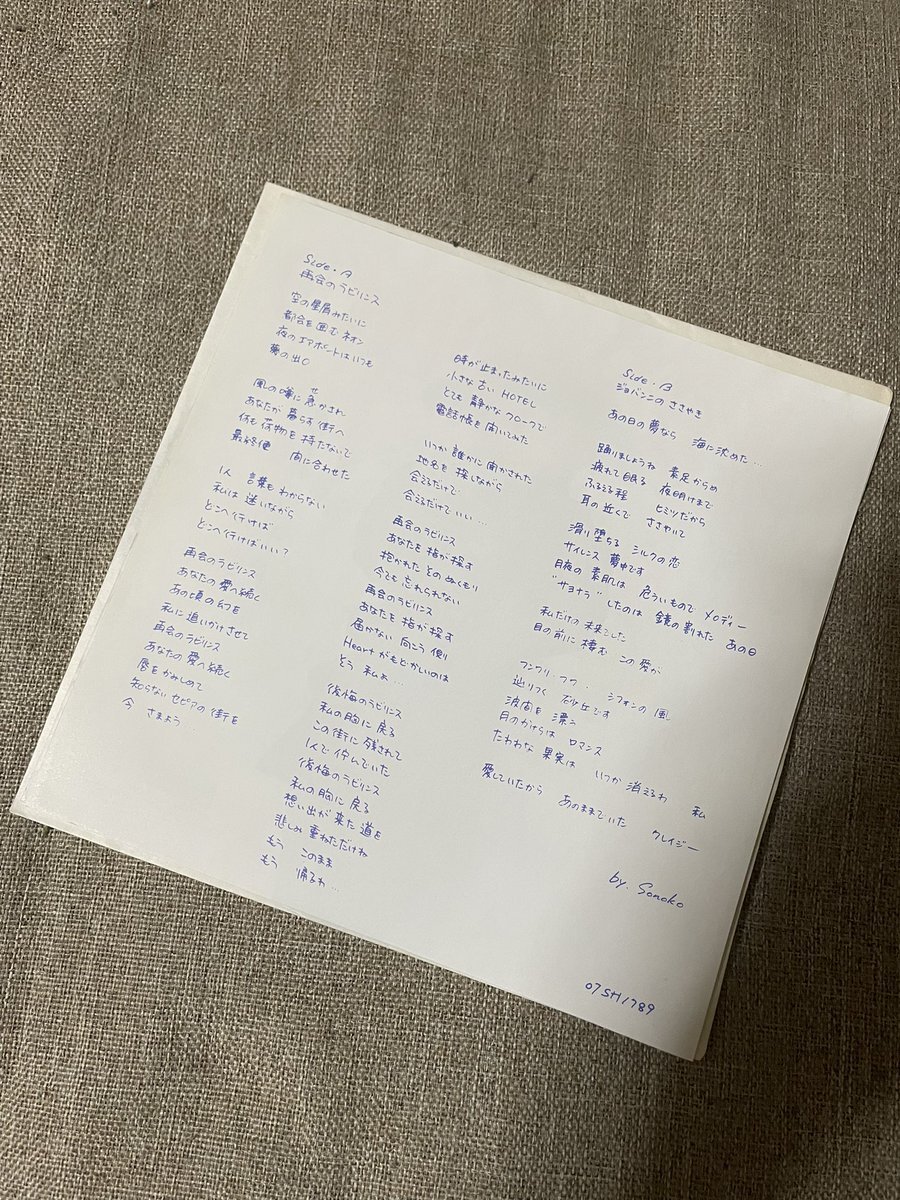 Side・A
再会のラビリンス
空の星屑みたいに
都会を囲むネオン
夜のエアポートはいつも
夢の出口
風の噂に急かされ
せ
あなたが暮らす街へ
何も荷物を持たないで
最終便 間に合わせた
1人 言葉もわからない
私は迷いながら
どこへ行けば
どこへ行けばいい?
再会のラビリンス
あなたの愛へ続く
あの頃の幻を
私に追いかけさせて
再会のラビリンス
あなたの愛へ続く
唇をかみしめて
知らないセピアの街を
今 さまよう
時が止まったみたいに
小さな古いHOTEL
とても静かなクロークで
電話帳を開いてみた
いつか誰かに聞かされた
地名を探しながら
会えるだけで
会えるだけでいい…
再会のラビリンス
あなたを指が探す
抱かれたとのぬくもり
今でも忘れられない
再会のラビリンス
あなたを指が探す
届かない向こう側
Heartがもどかしいのは
そう 私よ…
後悔のラビリンス
私の胸に戻る
この街に残されて
1人で佇んでいた
後悔のラビリンス
私の胸に戻る
想い出が来た道を
悲しみ重ねただけね
もう このまま
もう 帰るわ…
Side・B
ジョバンニのささやき
あの日の夢なら 海に沈めた…
踊りましょうね 素足からめ
疲れて眠る 夜明けまで
ふるえる程 ヒミツだから
耳の近くで ささやいて
滑り堕ちる シルクの恋
サイレンス 夢中です
月夜の素肌は 危ういもので メロディー
"サヨナラ"したのは 鏡の割れた あの日
私だけの未来でした
目の前に棲む この愛が
フンワリ・フワ・ シフォンの風
辿りつく 砂丘です
波間を漂う
月のかけらは ロマンス
たわわな果実は いつか消えるわ 私
愛していたから あのままでいた クレイジー
by. Sonoko
07SH1789